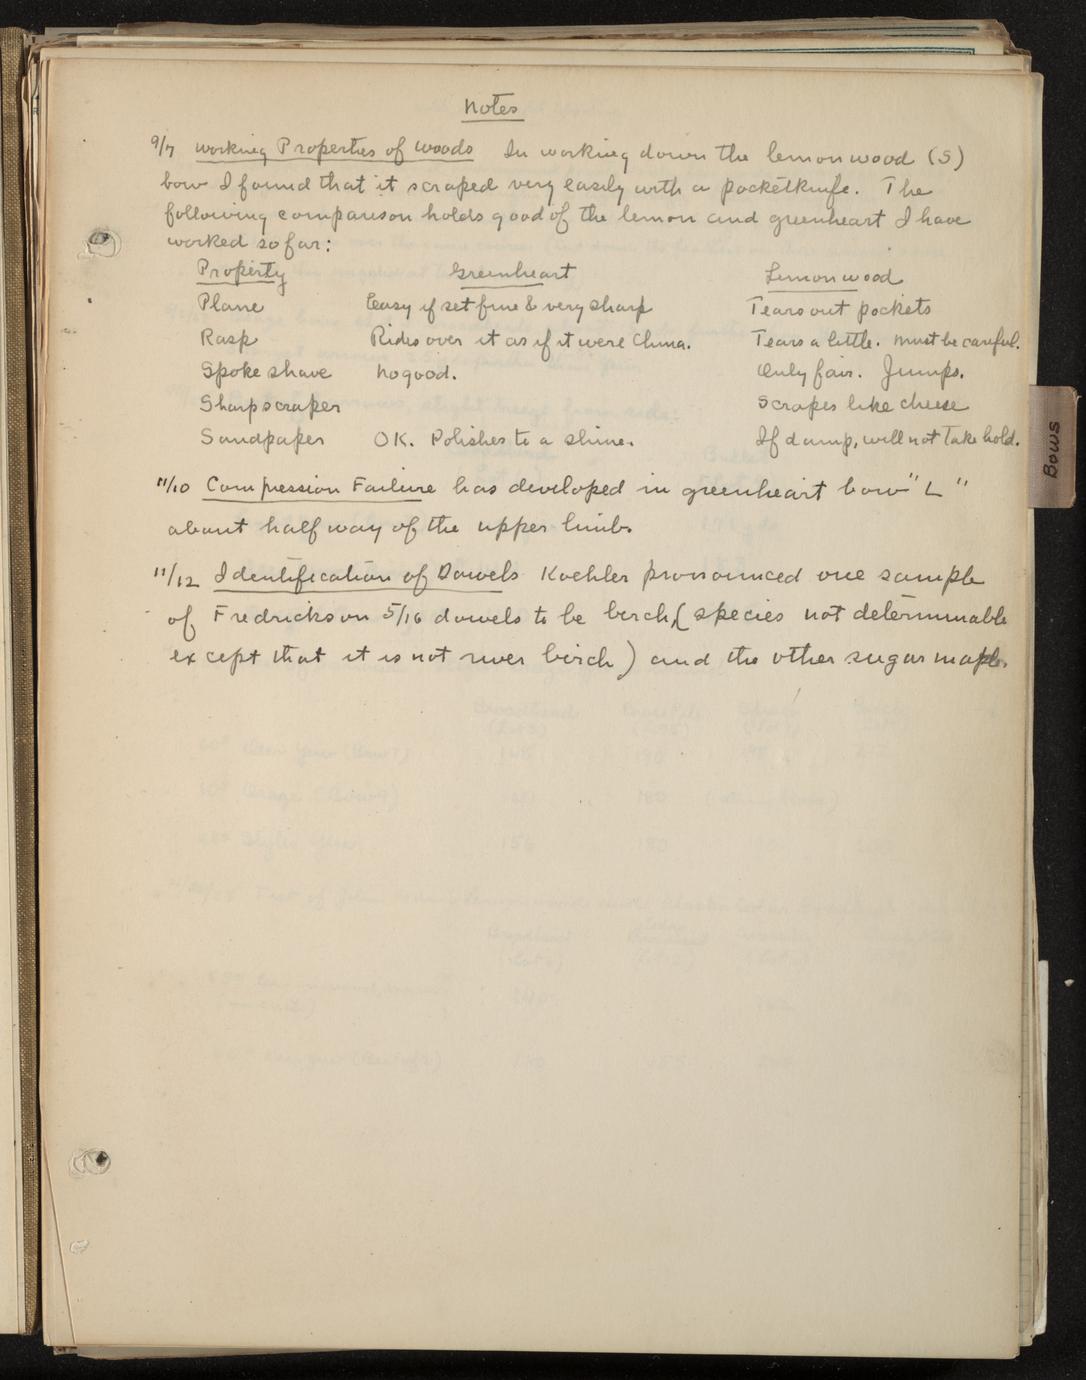 Notes
9/7 Working Properties of Woods In working down the lemonwood (S)
bow I found that it scraped very easily with a pocketknife. The
following comparison holds good of the lemon and greenheart I have
worked so far:
Property Greenheart Lemonwood
Plane Easy if set fine & very sharp Tears out pockets
Rasp Rides over it as if it were China. Tears a little. Must be careful.
Spoke shave No good. Only fair. Jumps.
Sharp scraper Scrapes like cheese
Sandpaper OK. Polishes to a shine. If damp, will not take hold.
11/10 Compression Failure has developed in greenheart bow "L"
about half way of the upper limb.
11/12 Identification of Dowels Koehler pronounced one sample
of Fredrickson 5/16 dowels to be birch, (species not determinable
except that it is not river birch) and the other sugar maple.
Bows